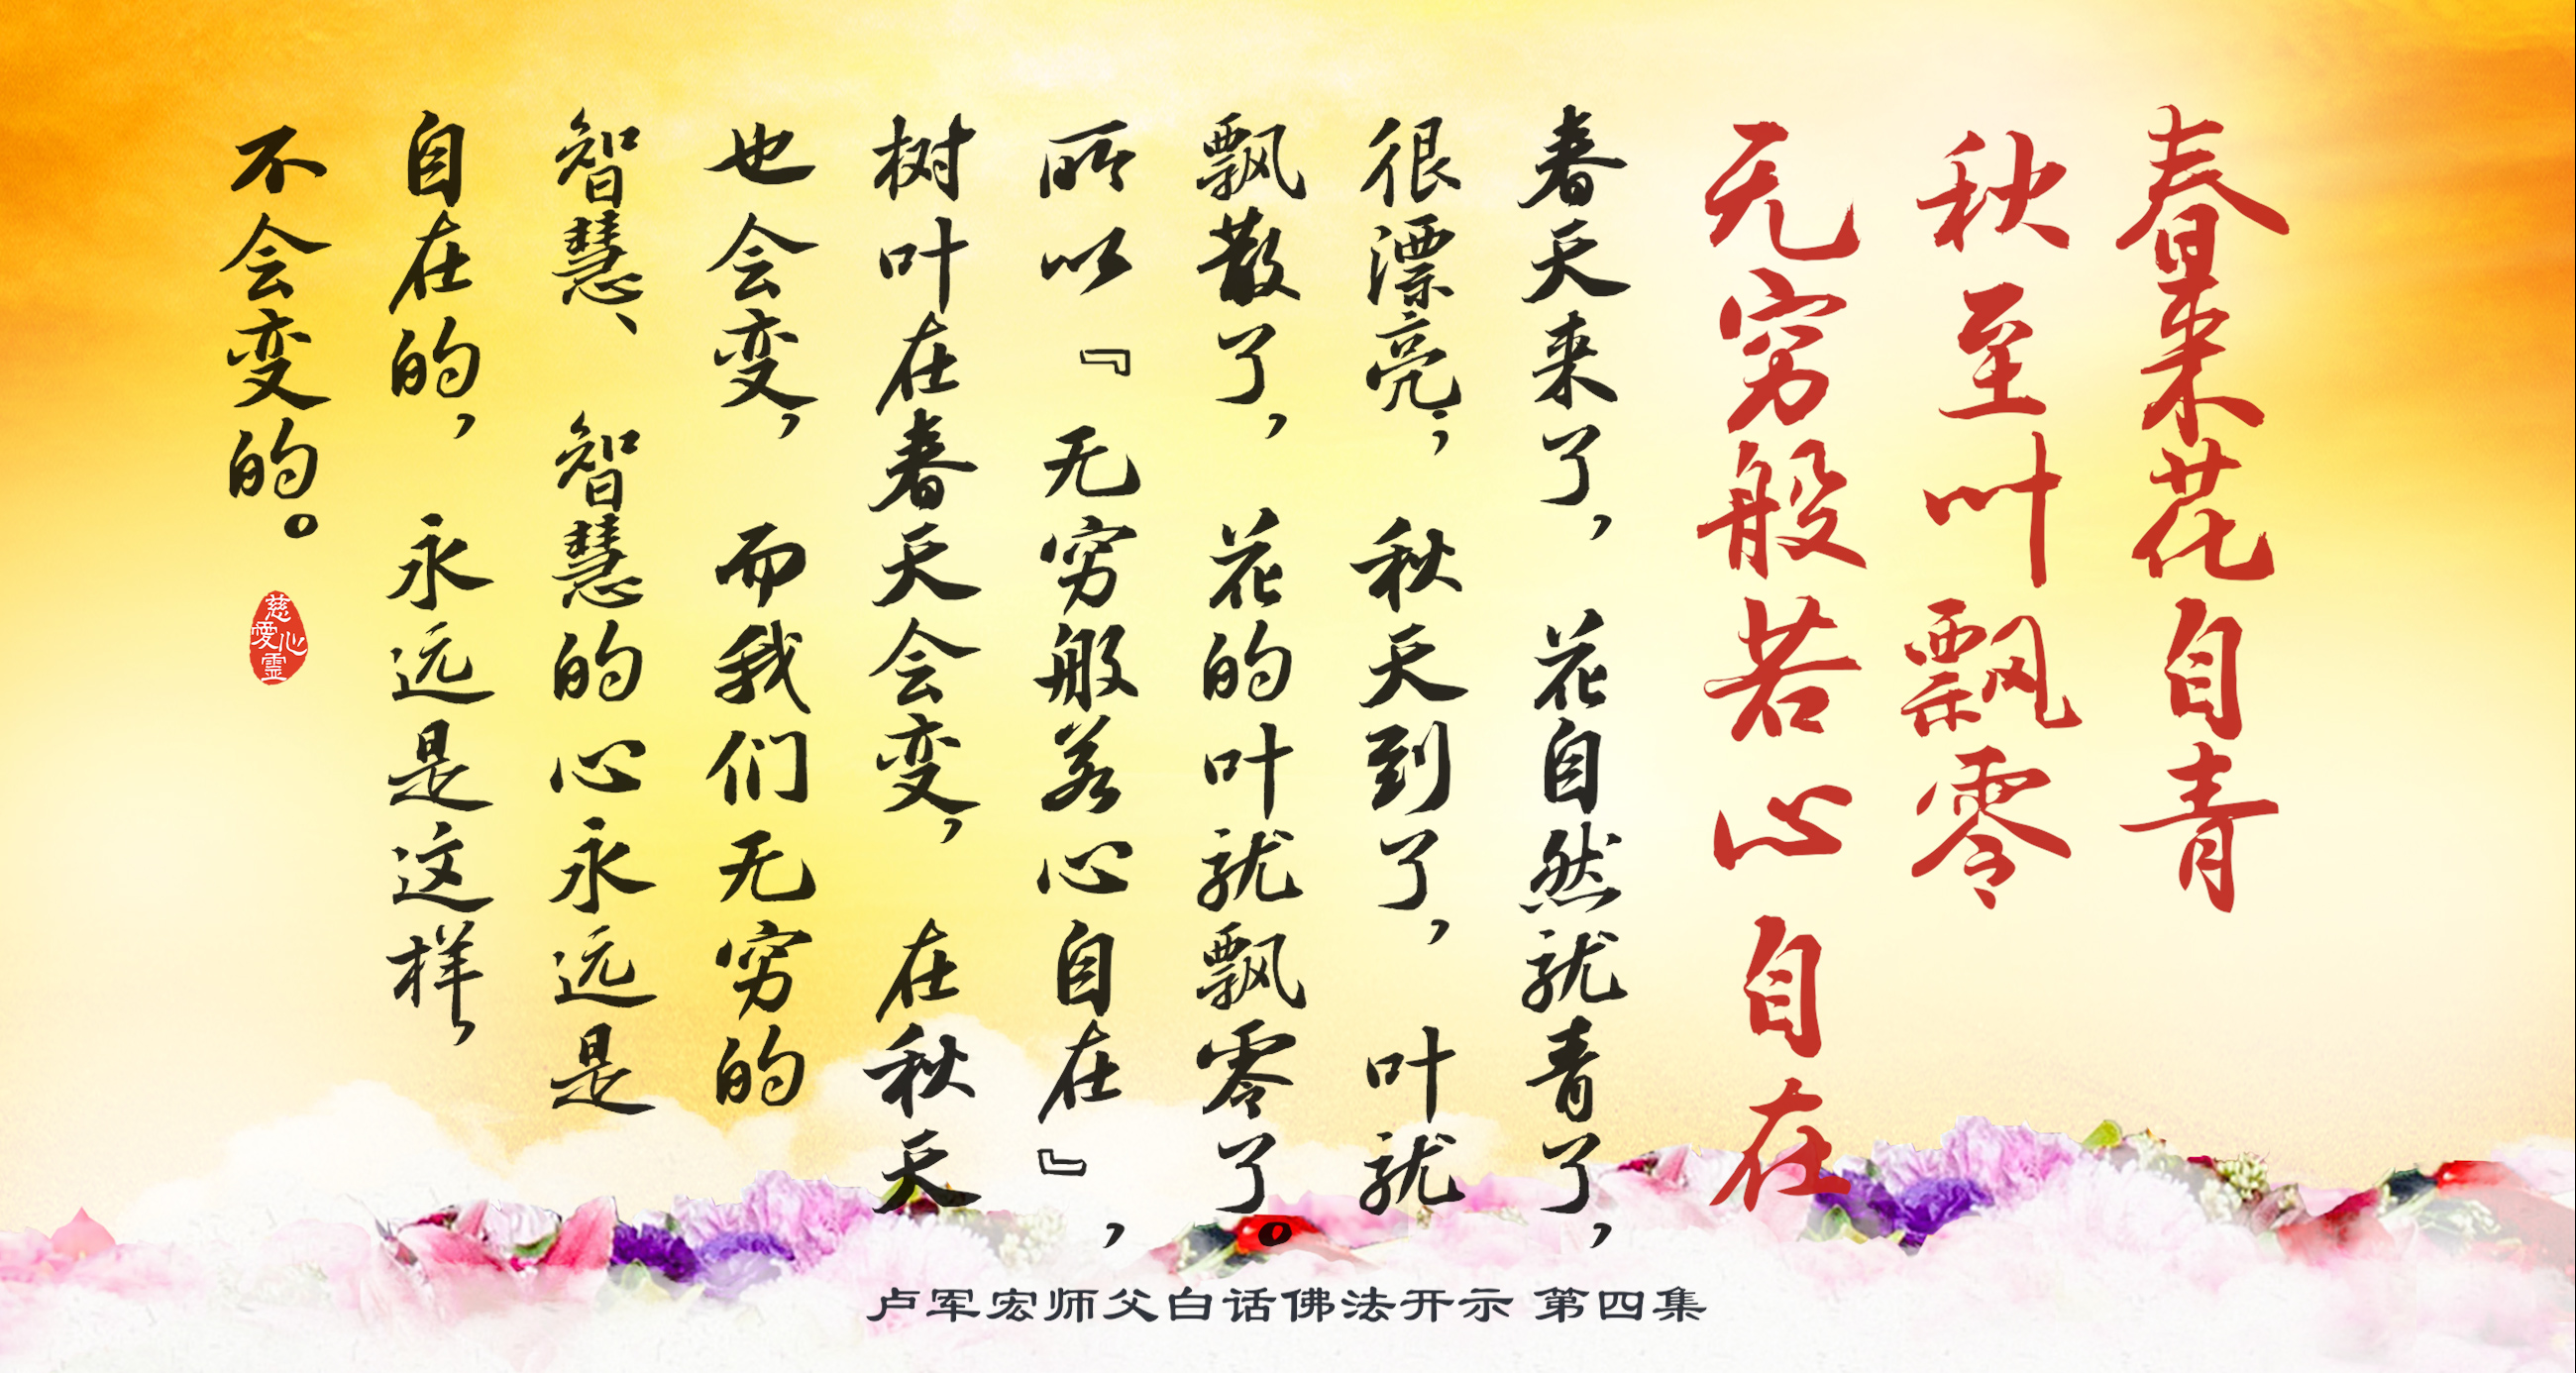 春来花自青
秋至叶飘零
无穷般若心自在
春天来了，花自然就青了，
很漂亮；秋天到了，叶就
飘散了，花的叶就飘零了。
所以『无穷般若心自在』，
树叶在春天会变，在秋天
也会变，而我们无穷的
智慧、智慧的心永远是
自在的，永远是这样，
不会变的。
慈心
愛靈
卢军宏师父白话佛法开示 第四集